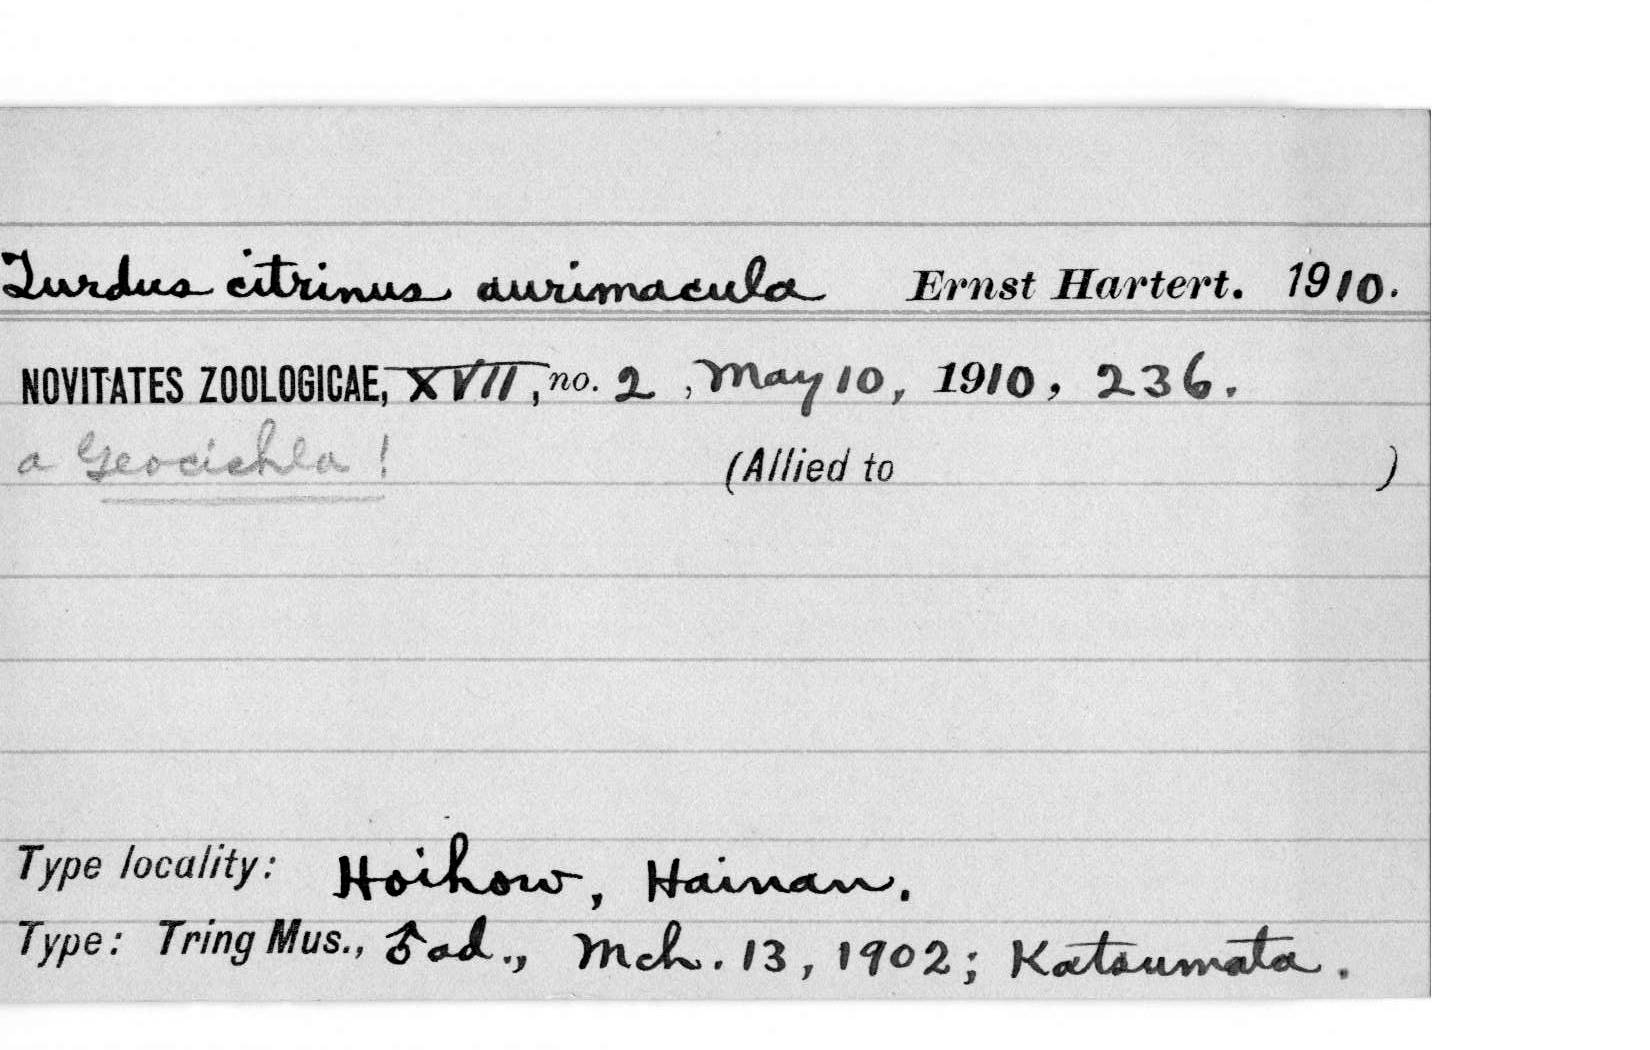 Turdus citrinus aurimacula Ernst Hartert. 1910.
NOVITATES ZOOLOGICAE, XVII, no. 2, May 10, 1910, 236.
a Geocichla! (Allied to )
Type locality: Hoihow, Hainan.
Type: Tring Mus., ♂ ad., Mch. 13, 1902; Katsumata.